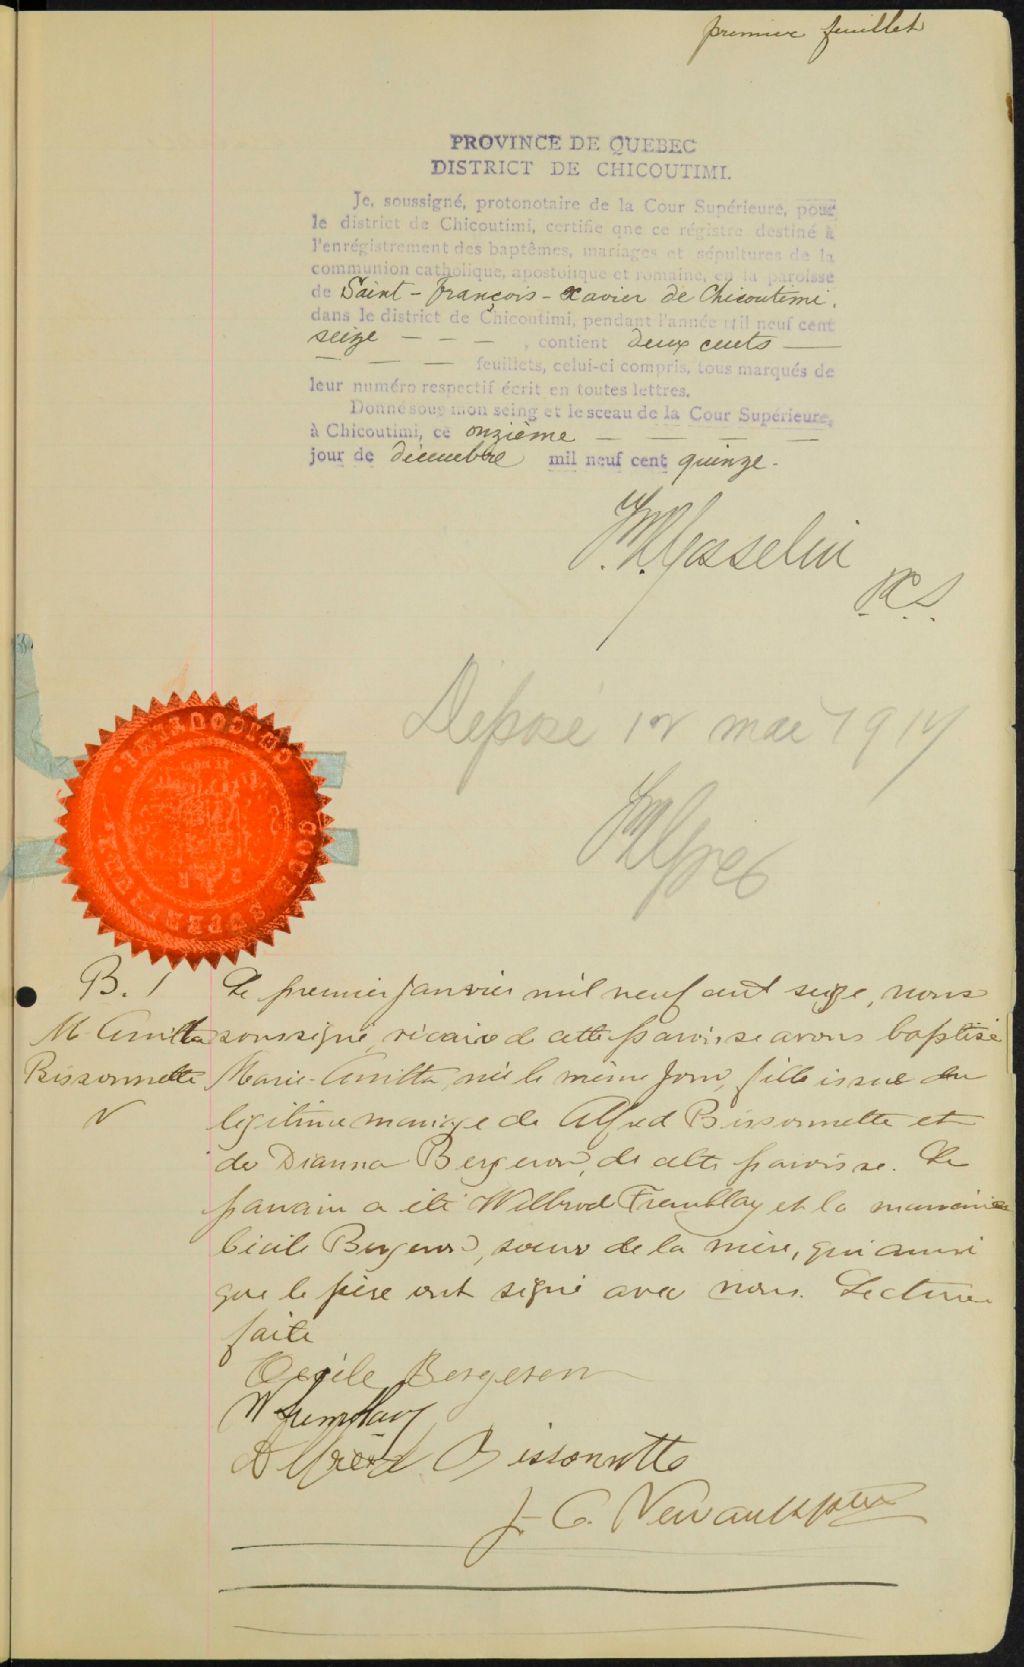 premier feuillet
PROVINCE DE QUEBEC
DISTRICT DE CHICOUTIMI.
Je, soussigné, protonotaire de la Cour Supérieure, pour
le district de Chicoutimi, certifie qne ce régistre destiné à
l'enrégistrement des baptêmes, mariages et sépultures de la
communion catholique, apostolique et romaine, en la paroisse
de Saint-François-Xavier de Chicoutimi,
dans le district de Chicoutimi, pendant l'année mil neuf cent
seize - - - , contient deux cents —
— — — feuillets, celui-ci compris, tous marqués de
leur numéro respectif écrit en toutes lettres.
Donné sous mon seing et le sceau de la Cour Supérieure,
à Chicoutimi, ce onzième — — — —
jour de décembre mil neuf cent quinze.
Gosselin
P.C.S.
Déposé 12 mai 1917
COUR SUPERIEURE
CHICOUTIMI
B. 1
M. Anitta
Bissonnette
Le premier janvier mil neuf cent seize, nous
soussigné, vicaire de cette paroisse avons baptisé
Marie-Anitta, née le même jour, fille issue du
légitime mariage de Alfred Bissonnette et
de Dianna Bergeron, de cette paroisse. Le
parrain a été Wilbrod Tremblay et la marraine
Cécile Bergeron, soeur de la mère, qui ainsi
que le père ont signé avec nous. Lecture
faite
Cécile Bergeron
W Tremblay
Alfred Bissonnette